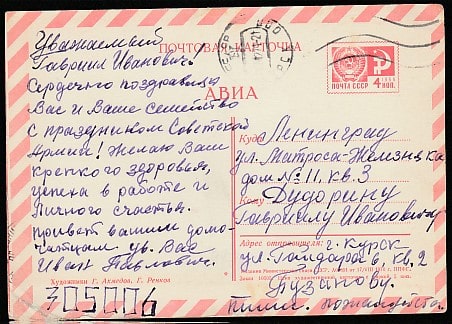 Уважаемый
Гавриил Иванович!
Сердечно поздравляю
Вас и Ваше семейство
с праздником Советской
Армии! Желаю Вам
крепкого здоровья,
успеха в работе и
личного счастья.
привет вашим домо-
чатцам. ув. Вас
Иван Павлович.
Художники Г. Ахмедов, Г. Ренков
305006
ПОЧТОВАЯ КАРТОЧКА
АВИА
ПОЧТА СССР
4 КОП.
Куда Ленинград
ул. Матроса-Железняка
дом № 11, кв. 3
Кому Дудорину
Гавриилу Ивановичу
Адрес отправителя: г. Курск
ул. Гайдара 6, кв. 2
Пузанову.
Пиши. пожалуйста.